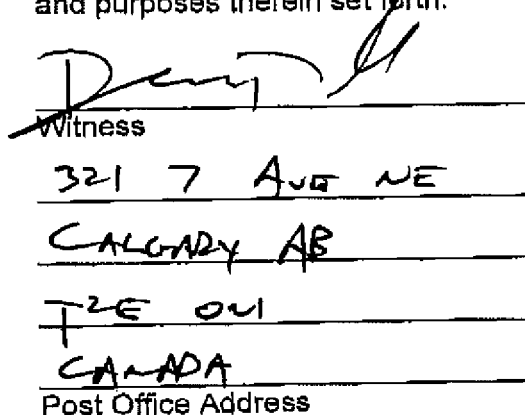 and purposes therein set forth.
Witness
321 7 AVE NE
CALGARY AB
T2E 0N1
CANADA
Post Office Address